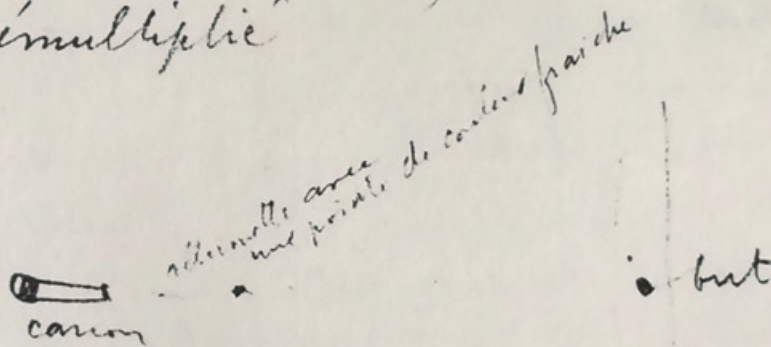 émultiplié"
allumette avec
une pointe de couleur fraîche
canon
but